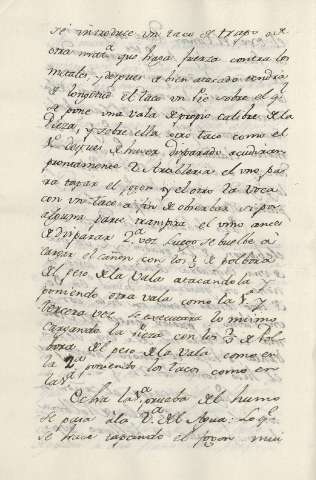 se introduce un taco de trapo ó de
otra mat.a que haga fuerza contra los
metales, y despues de bien atacado tendrá
de longitud el taco un pie sobre el q.e
se pone una vala de propio calibre de la
Pieza, y sobre ella otro taco como el
1.o despues de haver disparado acudiran
prontamente 2 Artilleros el uno pa
ra tapar el fogon y el otro la voca
con un taco a fin de obserbar si por
alguna parte transpira el umo antes
de disparar 2.a vez. Luego se buelbe á
cargar el cañon con los de Polbora
del peso de la vala atacandola y
poniendo otra vala como la 1.a y
tercera vez se executará lo mismo
cargando la pieza con los de Pol
bora del peso de la vala como en
la 2.a poniendo los tacos como en
la 1.a
Echa la 1.a prueba del humo
se pasa á la 2.a del Agua: Lo q.e
se hace tapando el fogon mui